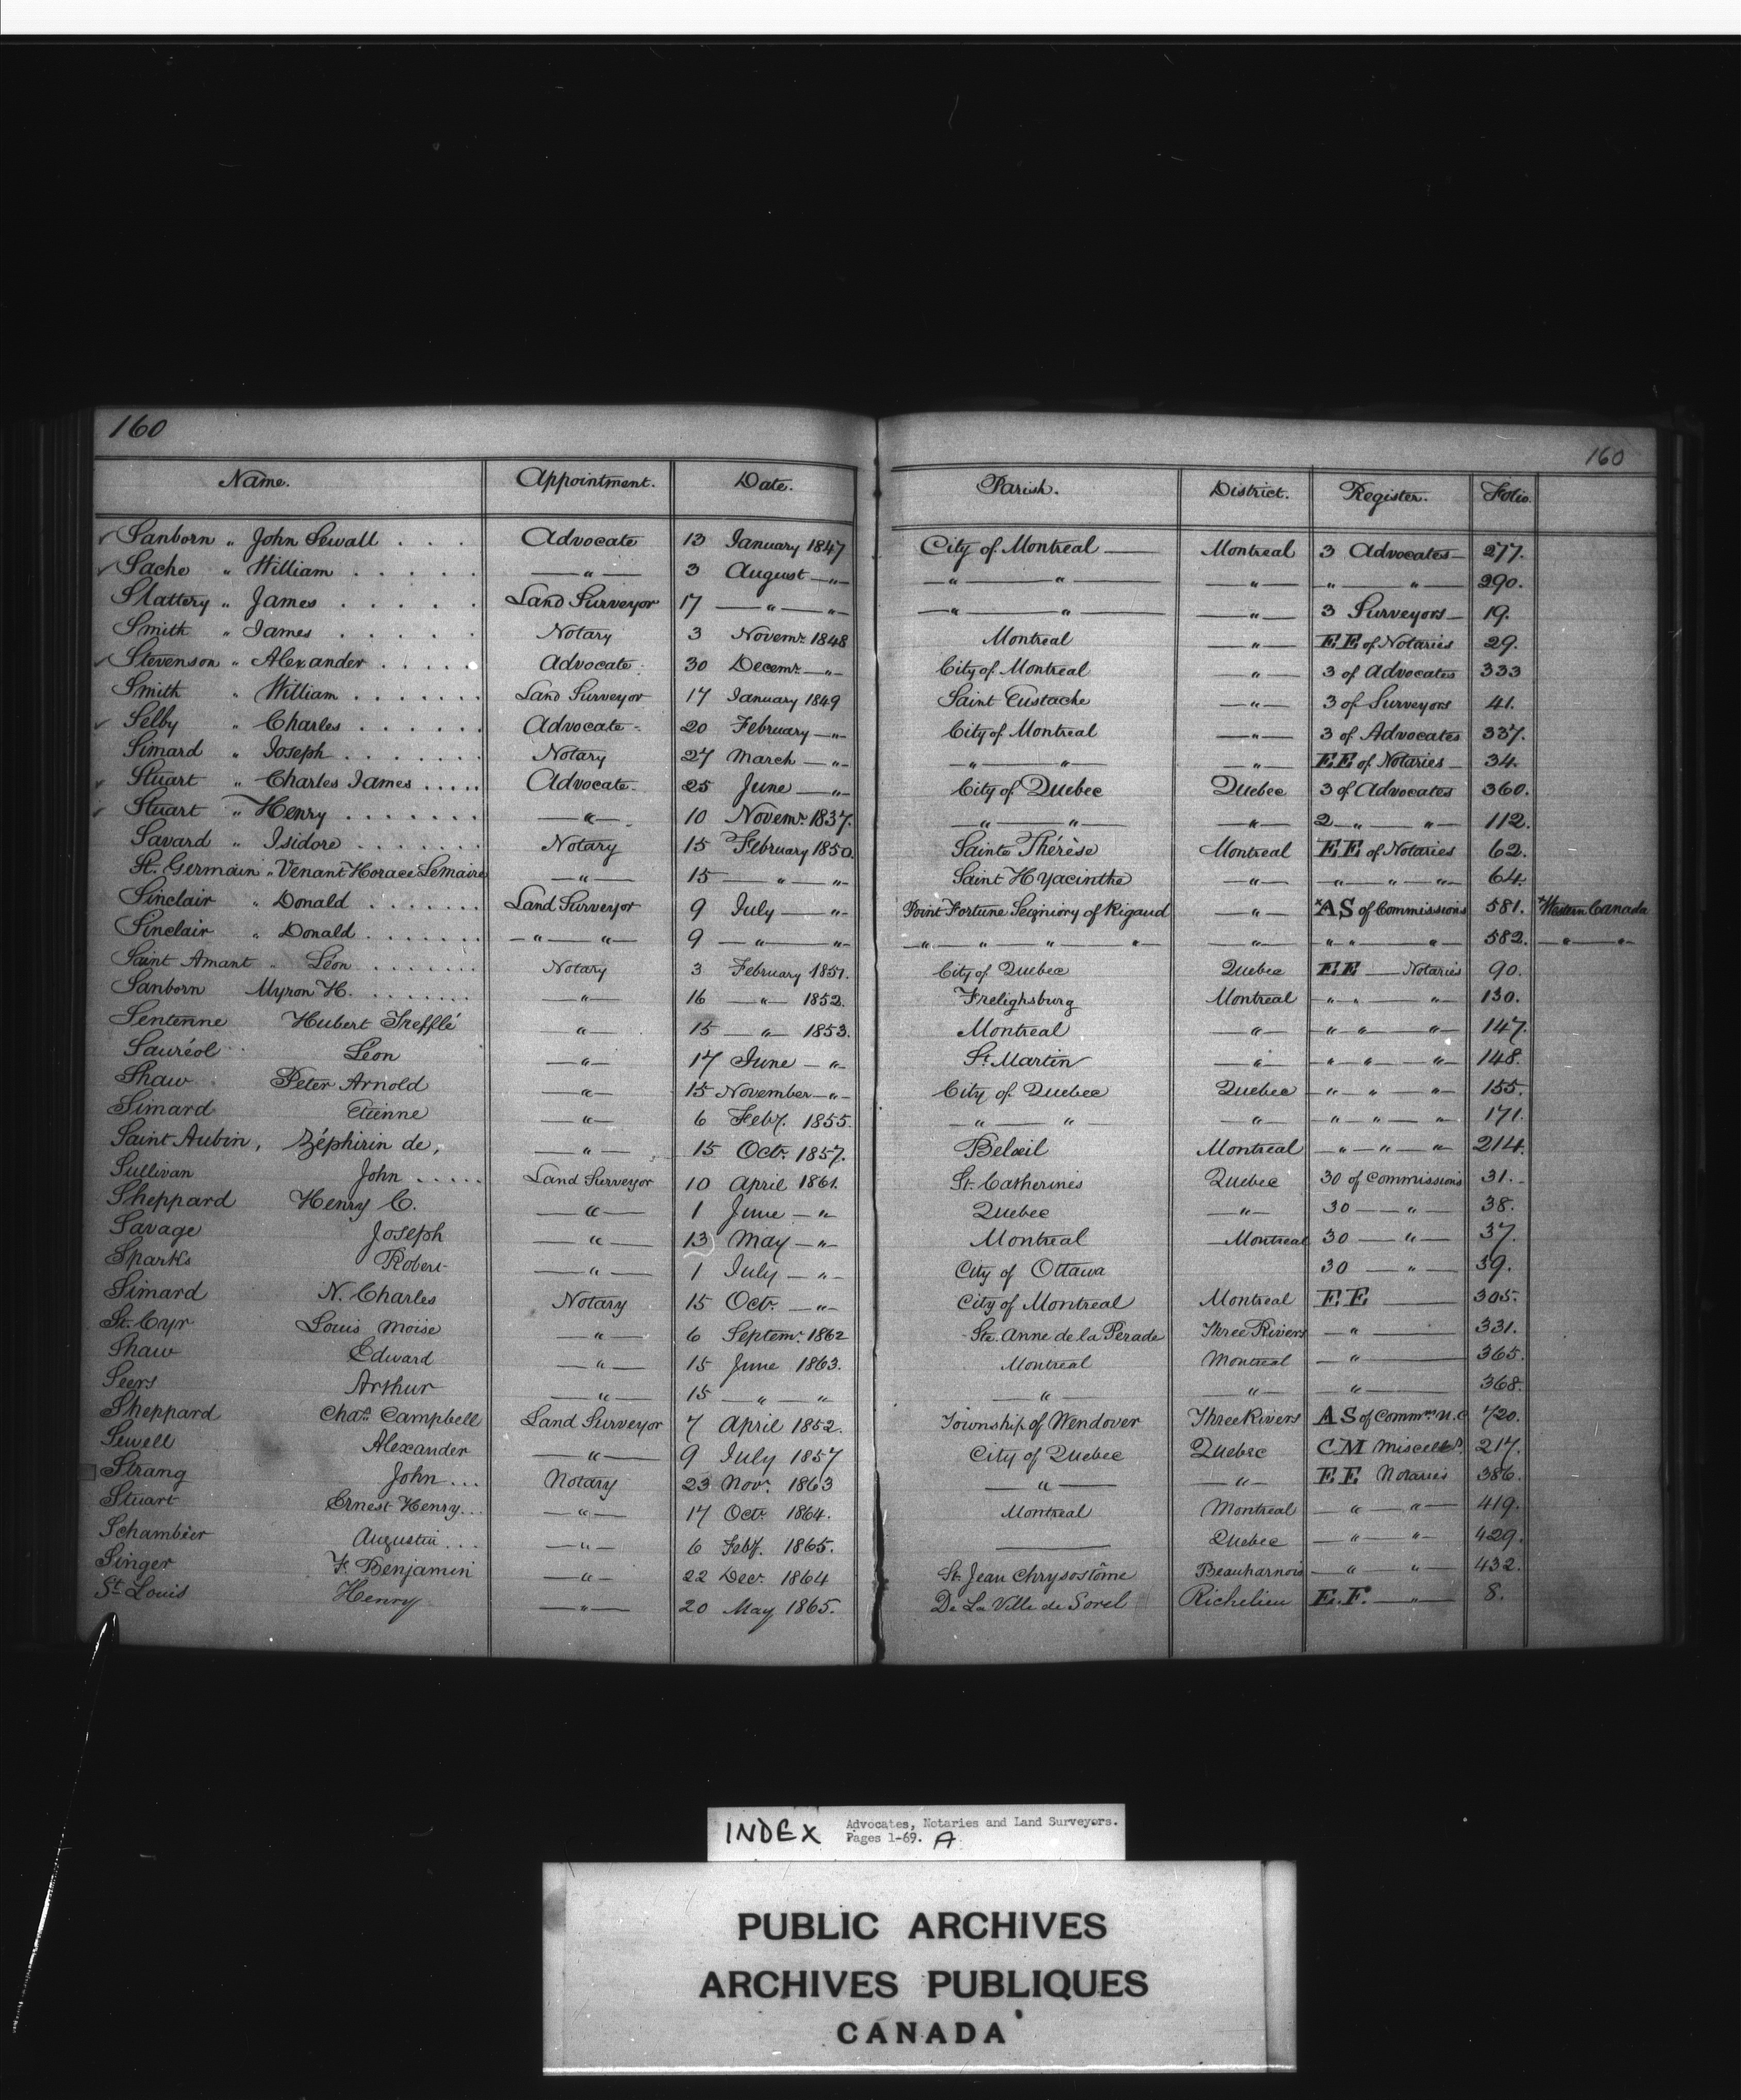 160 160
Name. Appointment. Date. Parish. District. Register. Folio.
Sanborn „ John Sewall . . . Advocate 13 January 1847 City of Montreal — Montreal 3 Advocates — 277.
Sache „ William . . . . . —„— 3 August —„— —„— —„— —„— „ „— 290.
Slattery „ James . . . . . Land Surveyor 17 —„—„— —„— —„— —„— 3 Surveyors — 19.
Smith „ James . . . . . Notary 3 Novemr. 1848 Montreal —„— EE of Notaries 29.
Stevenson „ Alexander . . . . . Advocate 30 Decemr. —„— City of Montreal —„— 3 of Advocates 333
Smith „ William . . . . . . . Land Surveyor 17 January 1849 Saint Eustache —„— 3 of Surveyors 41.
Selby „ Charles . . . . . . Advocate - 20 February —„— City of Montreal —„— 3 of Advocates 337.
Simard „ Joseph . . . . . . . Notary 27 March —„— —„— —„— —„— EE of Notaries — 34.
Stuart „ Charles James . . . . . Advocate - 25 June —„— City of Quebec Quebec 3 of Advocates 360.
Stuart „ Henry . . . . . . . —„— 10 Novemr. 1837. —„— —„— —„— 2 —„— „— 112.
Savard „ Isidore . . . . . . . Notary 15 February 1850. Sainte Thérèse Montreal EE of Notaries 62.
St. Germain „ Venant Horace Lemaire —„— 15 —„— „— Saint Hyacinthe —„— —„—„—„— 64.
Sinclair „ Donald . . . . . . . Land Surveyor 9 July — „— Point Fortune Seigniory of Rigaud —„— *AS of Commissions 581. *Western Canada
Sinclair „ Donald . . . . . . —„— „— 9 —„— „— —„—„—„—„— —„— „ „ — „— 582. —„—„—
Saint Amant „ Léon . . . . . . . Notary 3 February 1851. City of Quebec Quebec EE — Notaries 90.
Sanborn Myron H. . . . . . . . —„— 16 —„— 1852. Frelighsburg Montreal —„ „ — „— 130.
Sentenne Hubert Trefflé —„— 15 —„— 1853. Montreal —„— —„ „— „— 147.
Sauréol Léon —„— 17 June —„— St. Martin —„— —„—„—„— 148.
Shaw Peter Arnold —„— 15 November —„— City of Quebec Quebec —„—„—„— 155.
Simard Etienne —„— 6 Feby. 1855. —„— „ —„— —„—„—„— 171.
Saint Aubin, Zéphirin de, —„— 15 Octr. 1857. Belœil Montreal —„—„—„— 214.
Sullivan John . . . . . Land Surveyor 10 April 1861. St. Catherines Quebec 30 of Commissions 31.
Sheppard Henry C. —„— 1 June —„ Quebec —„— 30 —„— 38.
Savage Joseph —„— 13 May —„— Montreal — Montreal 30 —„— 37.
Sparks Robert —„— 1 July —„— City of Ottawa 30 —„— 39.
Simard N. Charles Notary 15 Octr. —„— City of Montreal Montreal EE — 305.
St. Cyr Louis Moise —„— 6 Septemr. 1862 Ste. Anne de la Perade Three Rivers —„— 331.
Shaw Edward —„— 15 June 1863. Montreal Montreal —„— 365.
Seers Arthur —„— 15 —„— „ —„— —„— —„— 368.
Sheppard Chas. Campbell Land Surveyor 7 April 1852. Township of Wendover Three Rivers AS of Commns. U.C. 720.
Sewell Alexander —„— 9 July 1857 City of Quebec Quebec CM 217.
Strang John . . . Notary 23 Novr. 1863 —„— —„— EE Notaries 386.
Stuart Ernest Henry . . . —„— 17 Octr. 1864. Montreal Montreal —„—„— 419.
Schambier Augustin . . . —„— 6 Feby. 1865. — Quebec —„—„— 429.
Singer F. Benjamin —„— 22 Decr. 1864 St. Jean Chrysostôme Beauharnois —„— „— 432.
St. Louis Henry —„— 20 May 1865. De La Ville de Sorel Richelieu E.F. —„— 8.
INDEX Advocates, Notaries and Land Surveyors.
Pages 1-69. A
PUBLIC ARCHIVES
ARCHIVES PUBLIQUES
CANADA